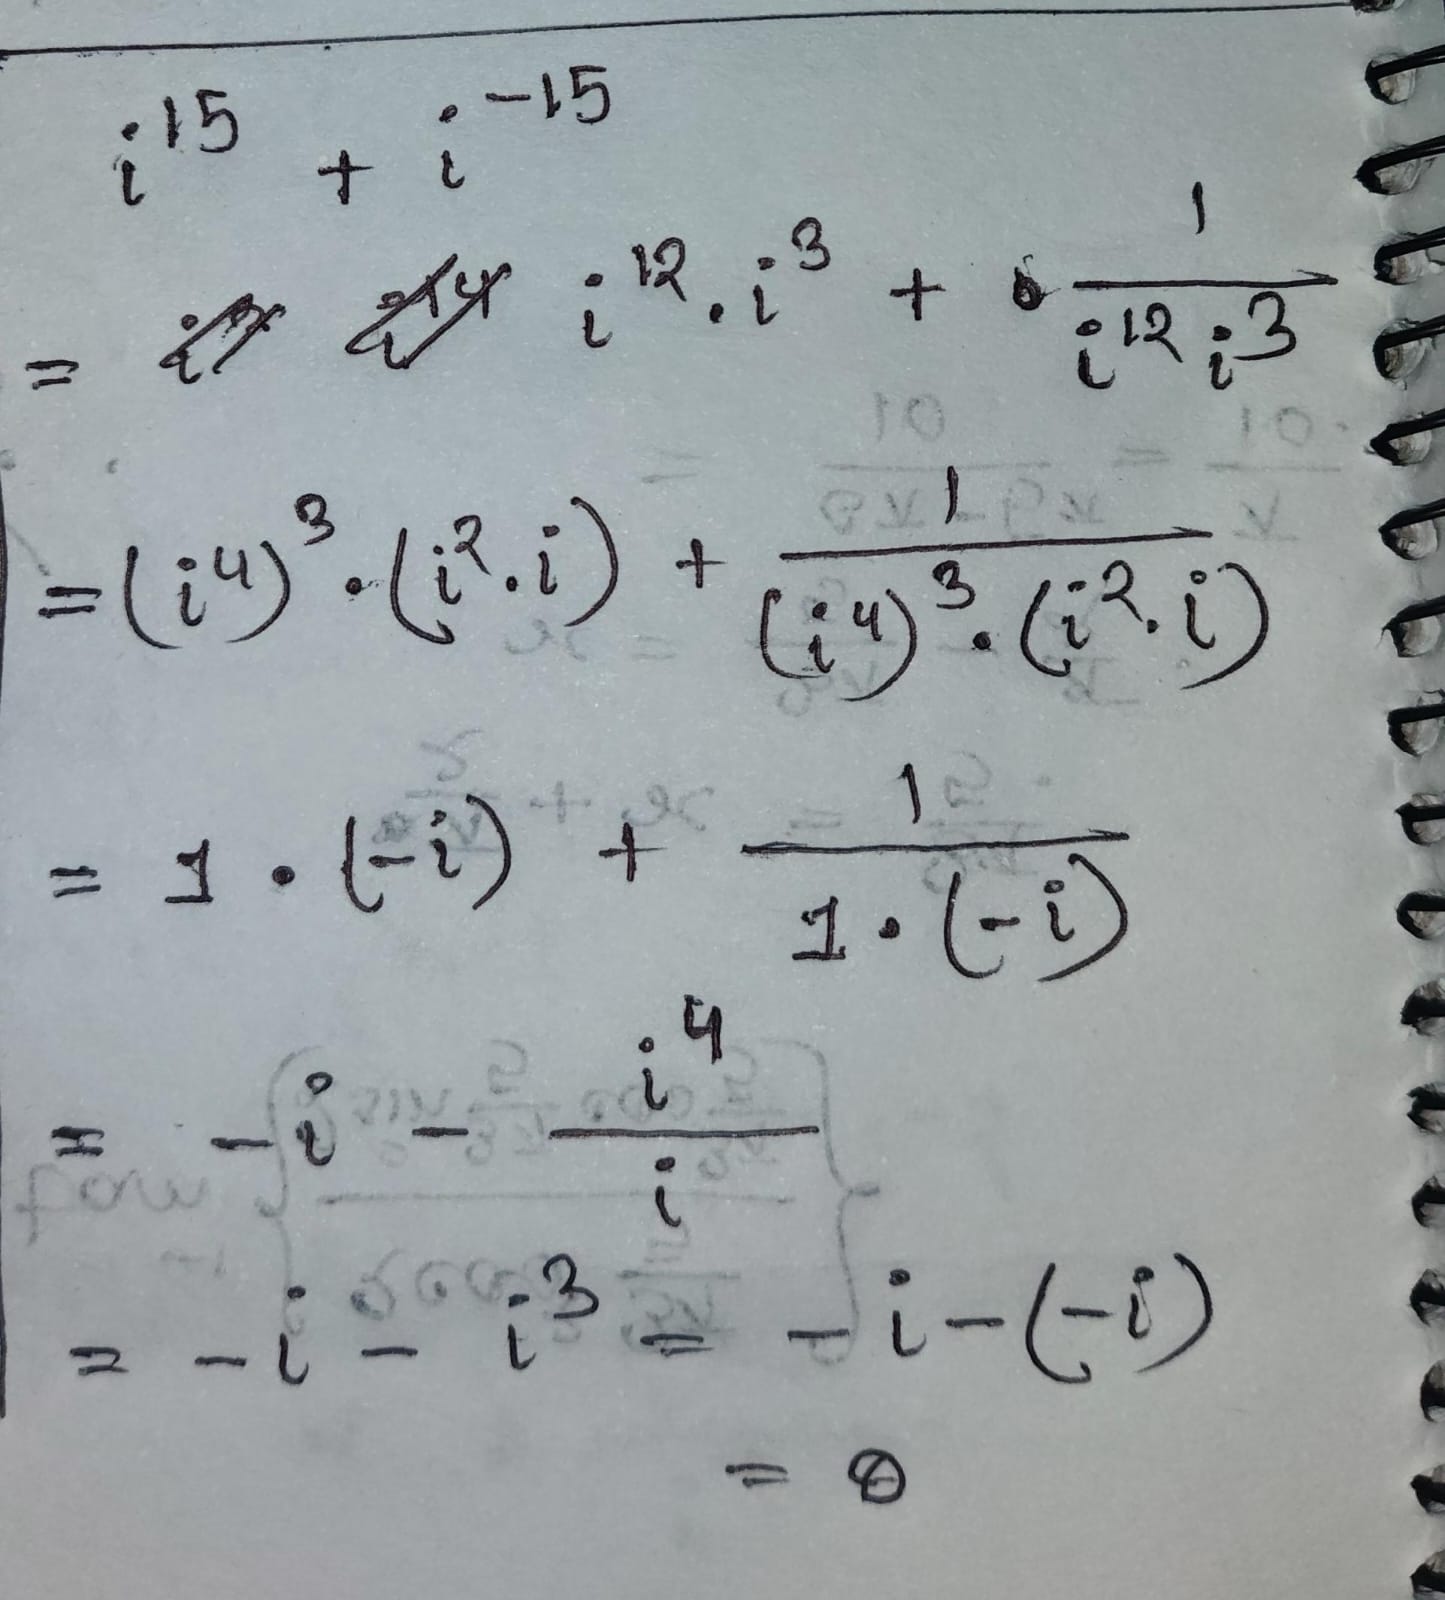 i^15 + i^-15
= i^12 . i^3 + 1/(i^12 i^3)
= (i^4)^3 . (i^2 . i) + 1/((i^4)^3 . (i^2 . i))
= 1 . (-i) + 1/(1 . (-i))
= -i - i^4/i
= -i - i^3 = -i - (-i)
= 0